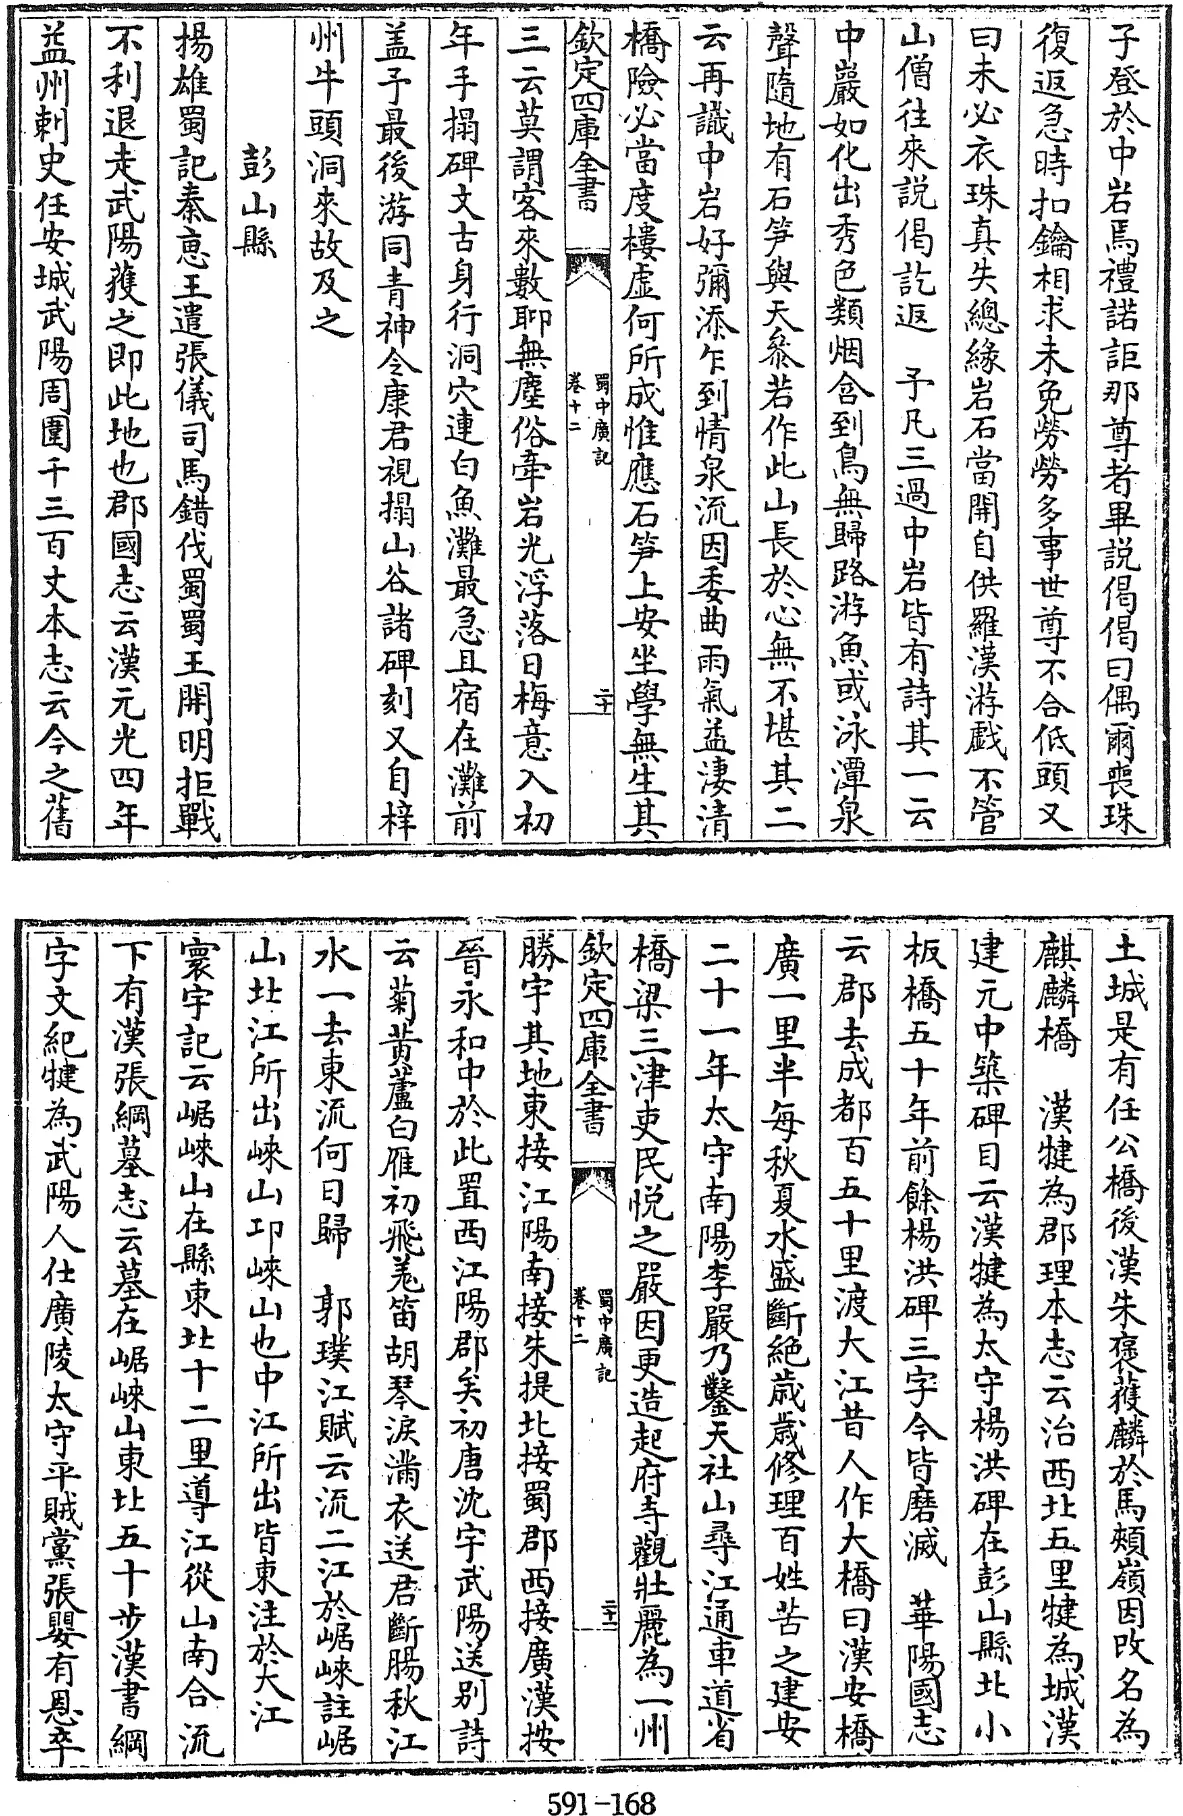 子登於中岩焉禮諾詎那尊者畢説偈偈曰偶爾喪珠
復返急時扣鑰相求未免勞勞多事世尊不合低頭又
曰未必衣珠真失總緣岩石當開自供羅漢游戲不管
山僧往來説偈訖返　予凡三過中岩皆有詩其一云
中巖如化出秀色類烟含到鳥無歸路游魚或泳潭泉
聲隨地有石笋與天叅若作此山長於心無不堪其二
云再識中岩好彌添乍到情泉流因委曲雨氣益淒清
橋險必當度樓虛何所成惟應石笋上安坐學無生其
欽定四庫全書
蜀中廣記
卷十二
二十
三云莫謂客來數聊無塵俗牽岩光浮落日梅意入初
年手搨碑文古身行洞穴連白魚灘最急且宿在灘前
盖予最後游同青神令康君視搨山谷諸碑刻又自梓
州牛頭洞來故及之
彭山縣
揚雄蜀記秦惠王遣張儀司馬錯伐蜀蜀王開明拒戰
不利退走武陽獲之即此地也郡國志云漢元光四年
益州刺史任安城武陽周圍千三百丈本志云今之舊
土城是有任公橋後漢朱褒獲麟於馬頰嶺因改名為
麒麟橋　漢犍為郡理本志云治西北五里犍為城漢
建元中築碑目云漢犍為太守楊洪碑在彭山縣北小
板橋五十年前餘楊洪碑三字今皆磨滅　華陽國志
云郡去成都百五十里渡大江昔人作大橋曰漢安橋
廣一里半每秋夏水盛斷絶歳歳修理百姓苦之建安
二十一年太守南陽李嚴乃鑿天社山尋江通車道省
橋梁三津吏民悅之嚴因更造起府寺觀壯麗為一州
欽定四庫全書
蜀中廣記
卷十二
二十一
勝宇其地東接江陽南接朱提北接蜀郡西接廣漢按
晉永和中於此置西江陽郡矣初唐沈宇武陽送别詩
云菊黄蘆白雁初飛羌笛胡琴淚滿衣送君斷腸秋江
水一去東流何日歸　郭璞江賦云流二江於崌崍註崌
山北江所出崍山卭崍山也中江所出皆東注於大江
寰宇記云崌崍山在縣東北十二里導江從山南合流
下有漢張綱墓志云墓在崌崍山東北五十步漢書綱
字文紀犍為武陽人仕廣陵太守平賊黨張嬰有恩卒
591-168